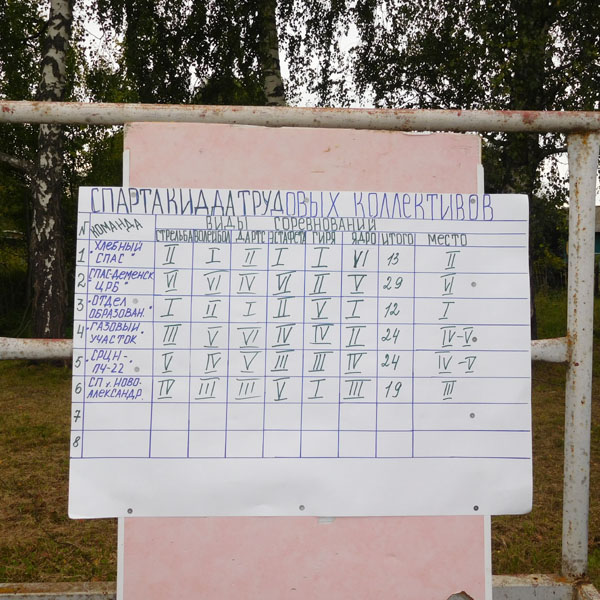 СПАРТАКИДААТРУДОВЫХ КОЛЛЕКТИВОВ
N КОМАНДА ВИДЫ СОРЕВНОВАНИЙ
СТРЕЛЬБА ВОЛЕЙБОЛ ДАРТС ЭСТАФЕТА ГИРЯ ЯДРО ИТОГО МЕСТО
1 "ХЛЕБНЫЙ СПАС" II I II I I VI 13 II
2 СПАС-ДЕМЕНСК. ЦРБ" VI VI IV VI II V 29 VI
3 "ОТДЕЛ ОБРАЗОВАН." I II I II V I 12 I
4 "ГАЗОВЫЙ УЧАСТОК" III V VI IV IV II 24 IV-V
5 СРЦН- ПЧ-22 V IV V III III IV 24 IV-V
6 СП с. НОВО- АЛЕКСАНДР. IV III III V I III 19 III
7
8